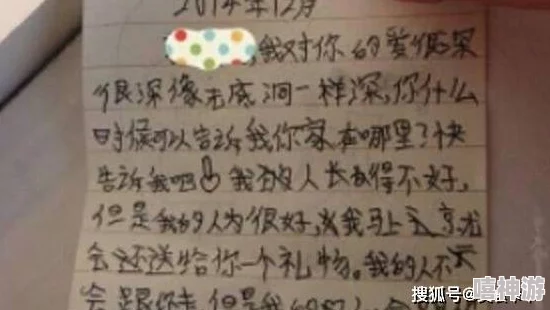 2014年12月
,我对你的爱很深
很深像无底洞一样深,你什么
时候可以告诉我你家在哪里了快
告诉我吧 我的人长得不好,
但是我的人为很好,我马上
会还送给你一个礼物。我的人不
会跟你走,但是我的
搜狐号@
嘻神游